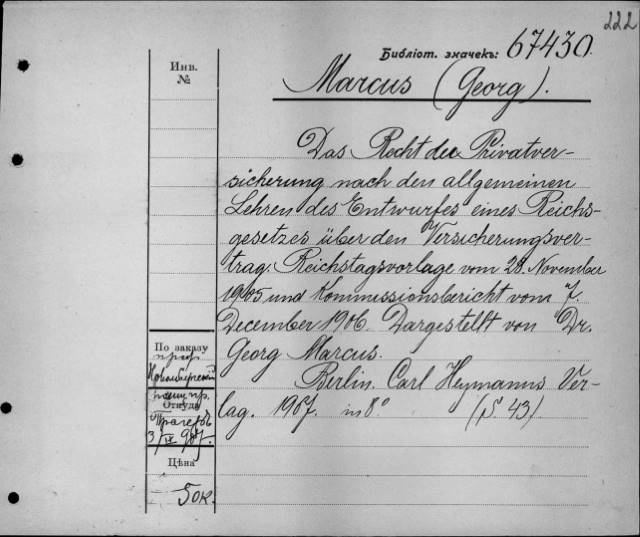 222
Библіот. значекъ: 67430.
Инв.
№
Marcus (Georg).
Das Recht der Privatver-
sicherung nach den allgemeinen
Lehren des Entwurfes eines Reichs-
gesetzes über den Versicherungsver-
trag. Reichstagsvorlage vom 28. November
1905 und Kommissionsbericht vom 7.
December 1906. Dargestellt von Dr.
Georg Marcus.
Berlin. Carl Heymanns Ver-
lag. 1907. in 8° (S. 43)
По заказу
проф
Откуда
Цѣна
50к.